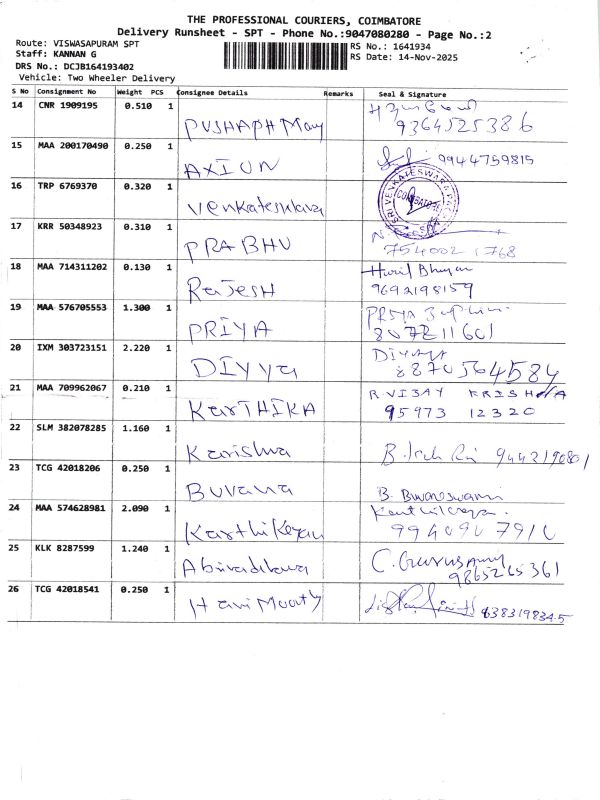 THE PROFESSIONAL COURIERS, COIMBATORE
Delivery Runsheet - SPT - Phone No.:9047080280 - Page No.:2
Route: VISWASAPURAM SPT
Staff: KANNAN G
DRS No.: DCJB164193402
Vehicle: Two Wheeler Delivery
RS No.: 1641934
RS Date: 14-Nov-2025
S No Consignment No Weight PCS Consignee Details Remarks Seal & Signature
14 CNR 1909195 0.510 1
PUSHAPH Mary 9364525386
15 MAA 200170490 0.250 1
AXIUN 9944759815
16 TRP 6769370 0.320 1
Venkateshdava SRI VENKATESWARA COIMBATORE
17 KRR 50348923 0.310 1
PRABHU 754002 1768
18 MAA 714311202 0.130 1
RaJesH 9692198159
19 MAA 576705553 1.300 1
PRIYA PRIYA 807211601
20 IXM 303723151 2.220 1
DIYYa DIYYA 8870564584
21 MAA 709962067 0.210 1 R VIJAY KRISHNA
KarTHIKA 95973 12320
22 SLM 382078285 1.160 1
Karishna 9442190801
23 TCG 42018206 0.250 1
Buvana B. Buvaneswari
24 MAA 574628981 2.090 1
KarthiKeyan 9940907910
25 KLK 8287599 1.240 1 C. Gurusamy
9865265361
26 TCG 42018541 0.250 1
Hari Moorty 6383198345